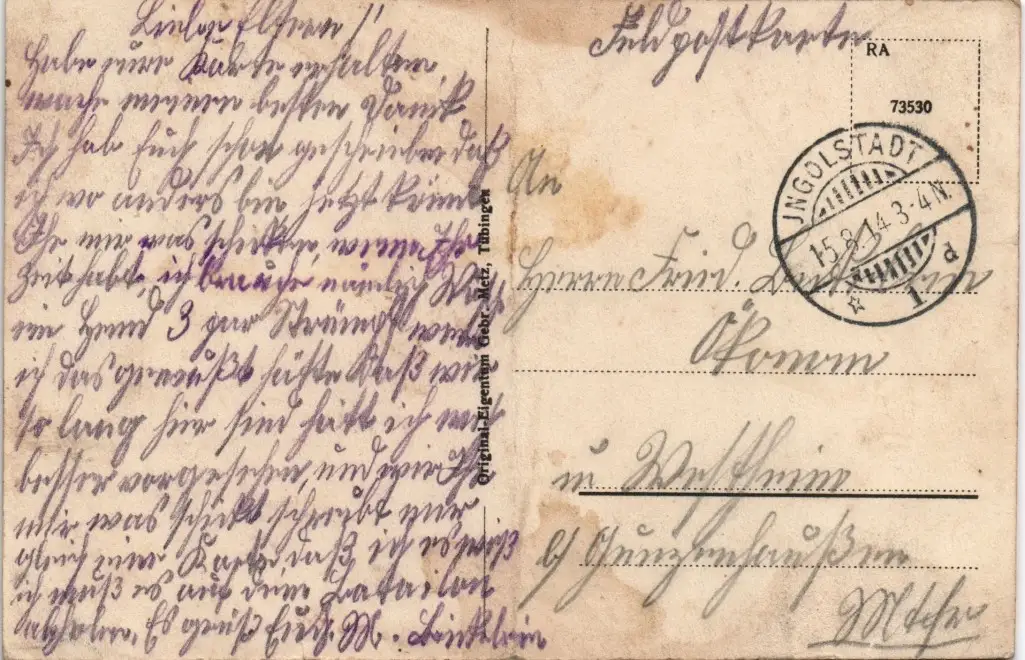 Liebe Eltern!
Habe eure Karte erhalten,
meinen besten Dank
Ich hab Euch schon geschrieben daß
ich wo anders bin jetzt könnt
Ihr mir was schicken, wenn Ihr
Zeit habt, ich brauche nämlich
ein Hemd 3 par Strümpf wenn
ich das gewußt hätte daß wir
so lang hier sind hätt ich mich
besser vorgesehen, und wenn Ihr
mir was schickt schreibt mir
gleich eine Karte daß ich es weiß
ich muß es auf dem Batailon
abholen. Es grüßt Euch M.
Original-Eigentum Gebr. Metz, Tübingen
Feldpostkarte
RA
73530
INGOLSTADT 1
15.8.14.3-4N.
d
An
Herrn Fried.
Ökonom
in Westheim
b/ Gunzenhaußen